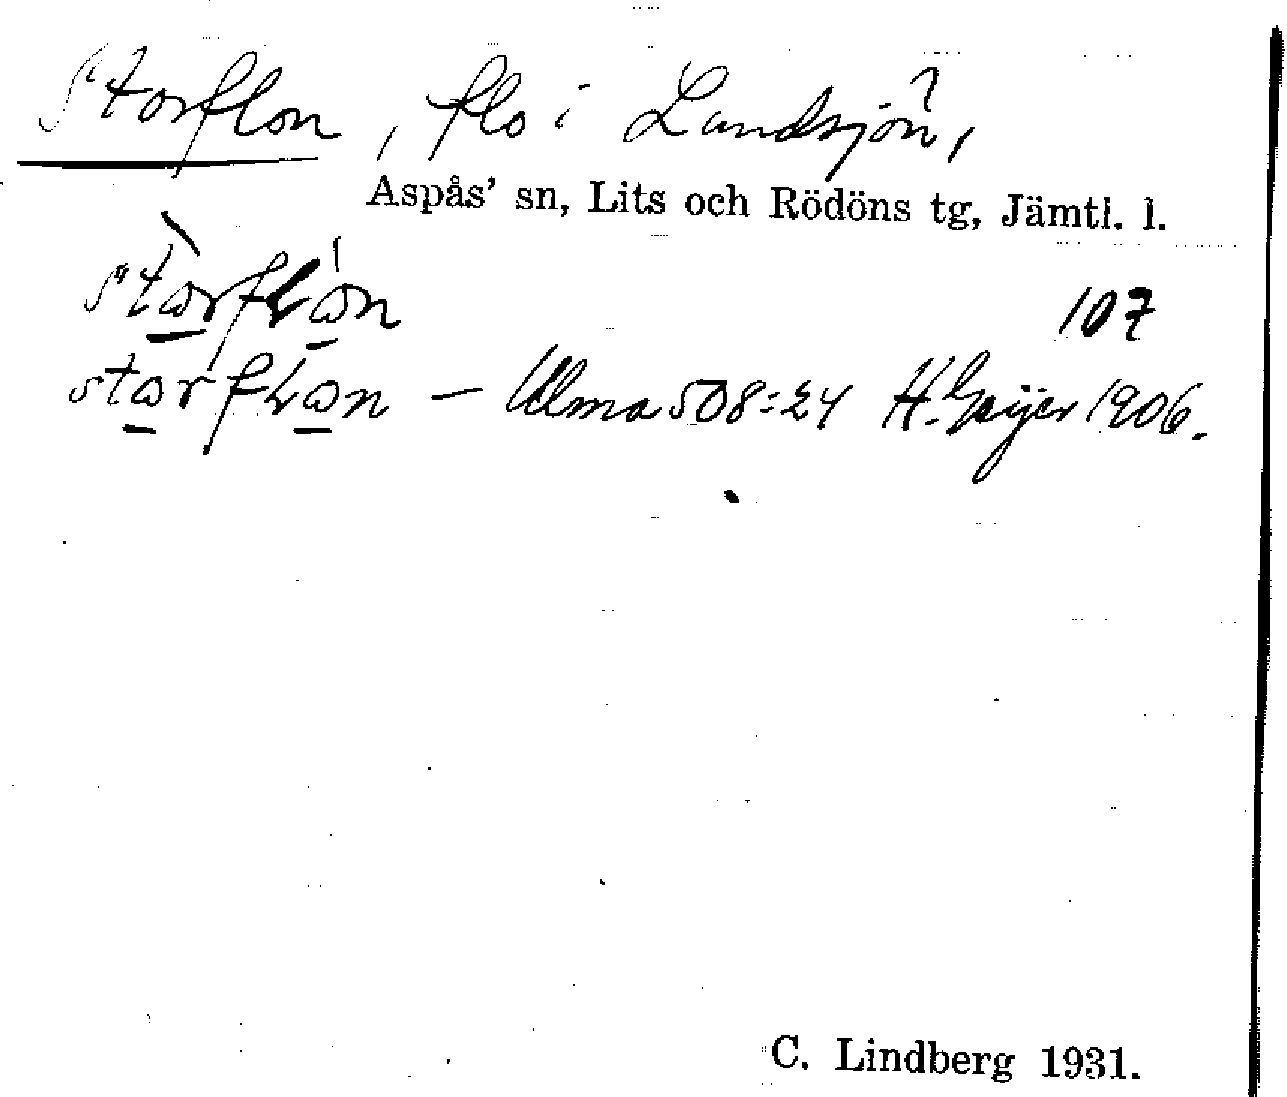 Storflon, flo i Landsjön,
Aspås' sn, Lits och Rödöns tg, Jämtl. l.
107
— Ulma 508:24 H. Geijer 1906.
C. Lindberg 1931.